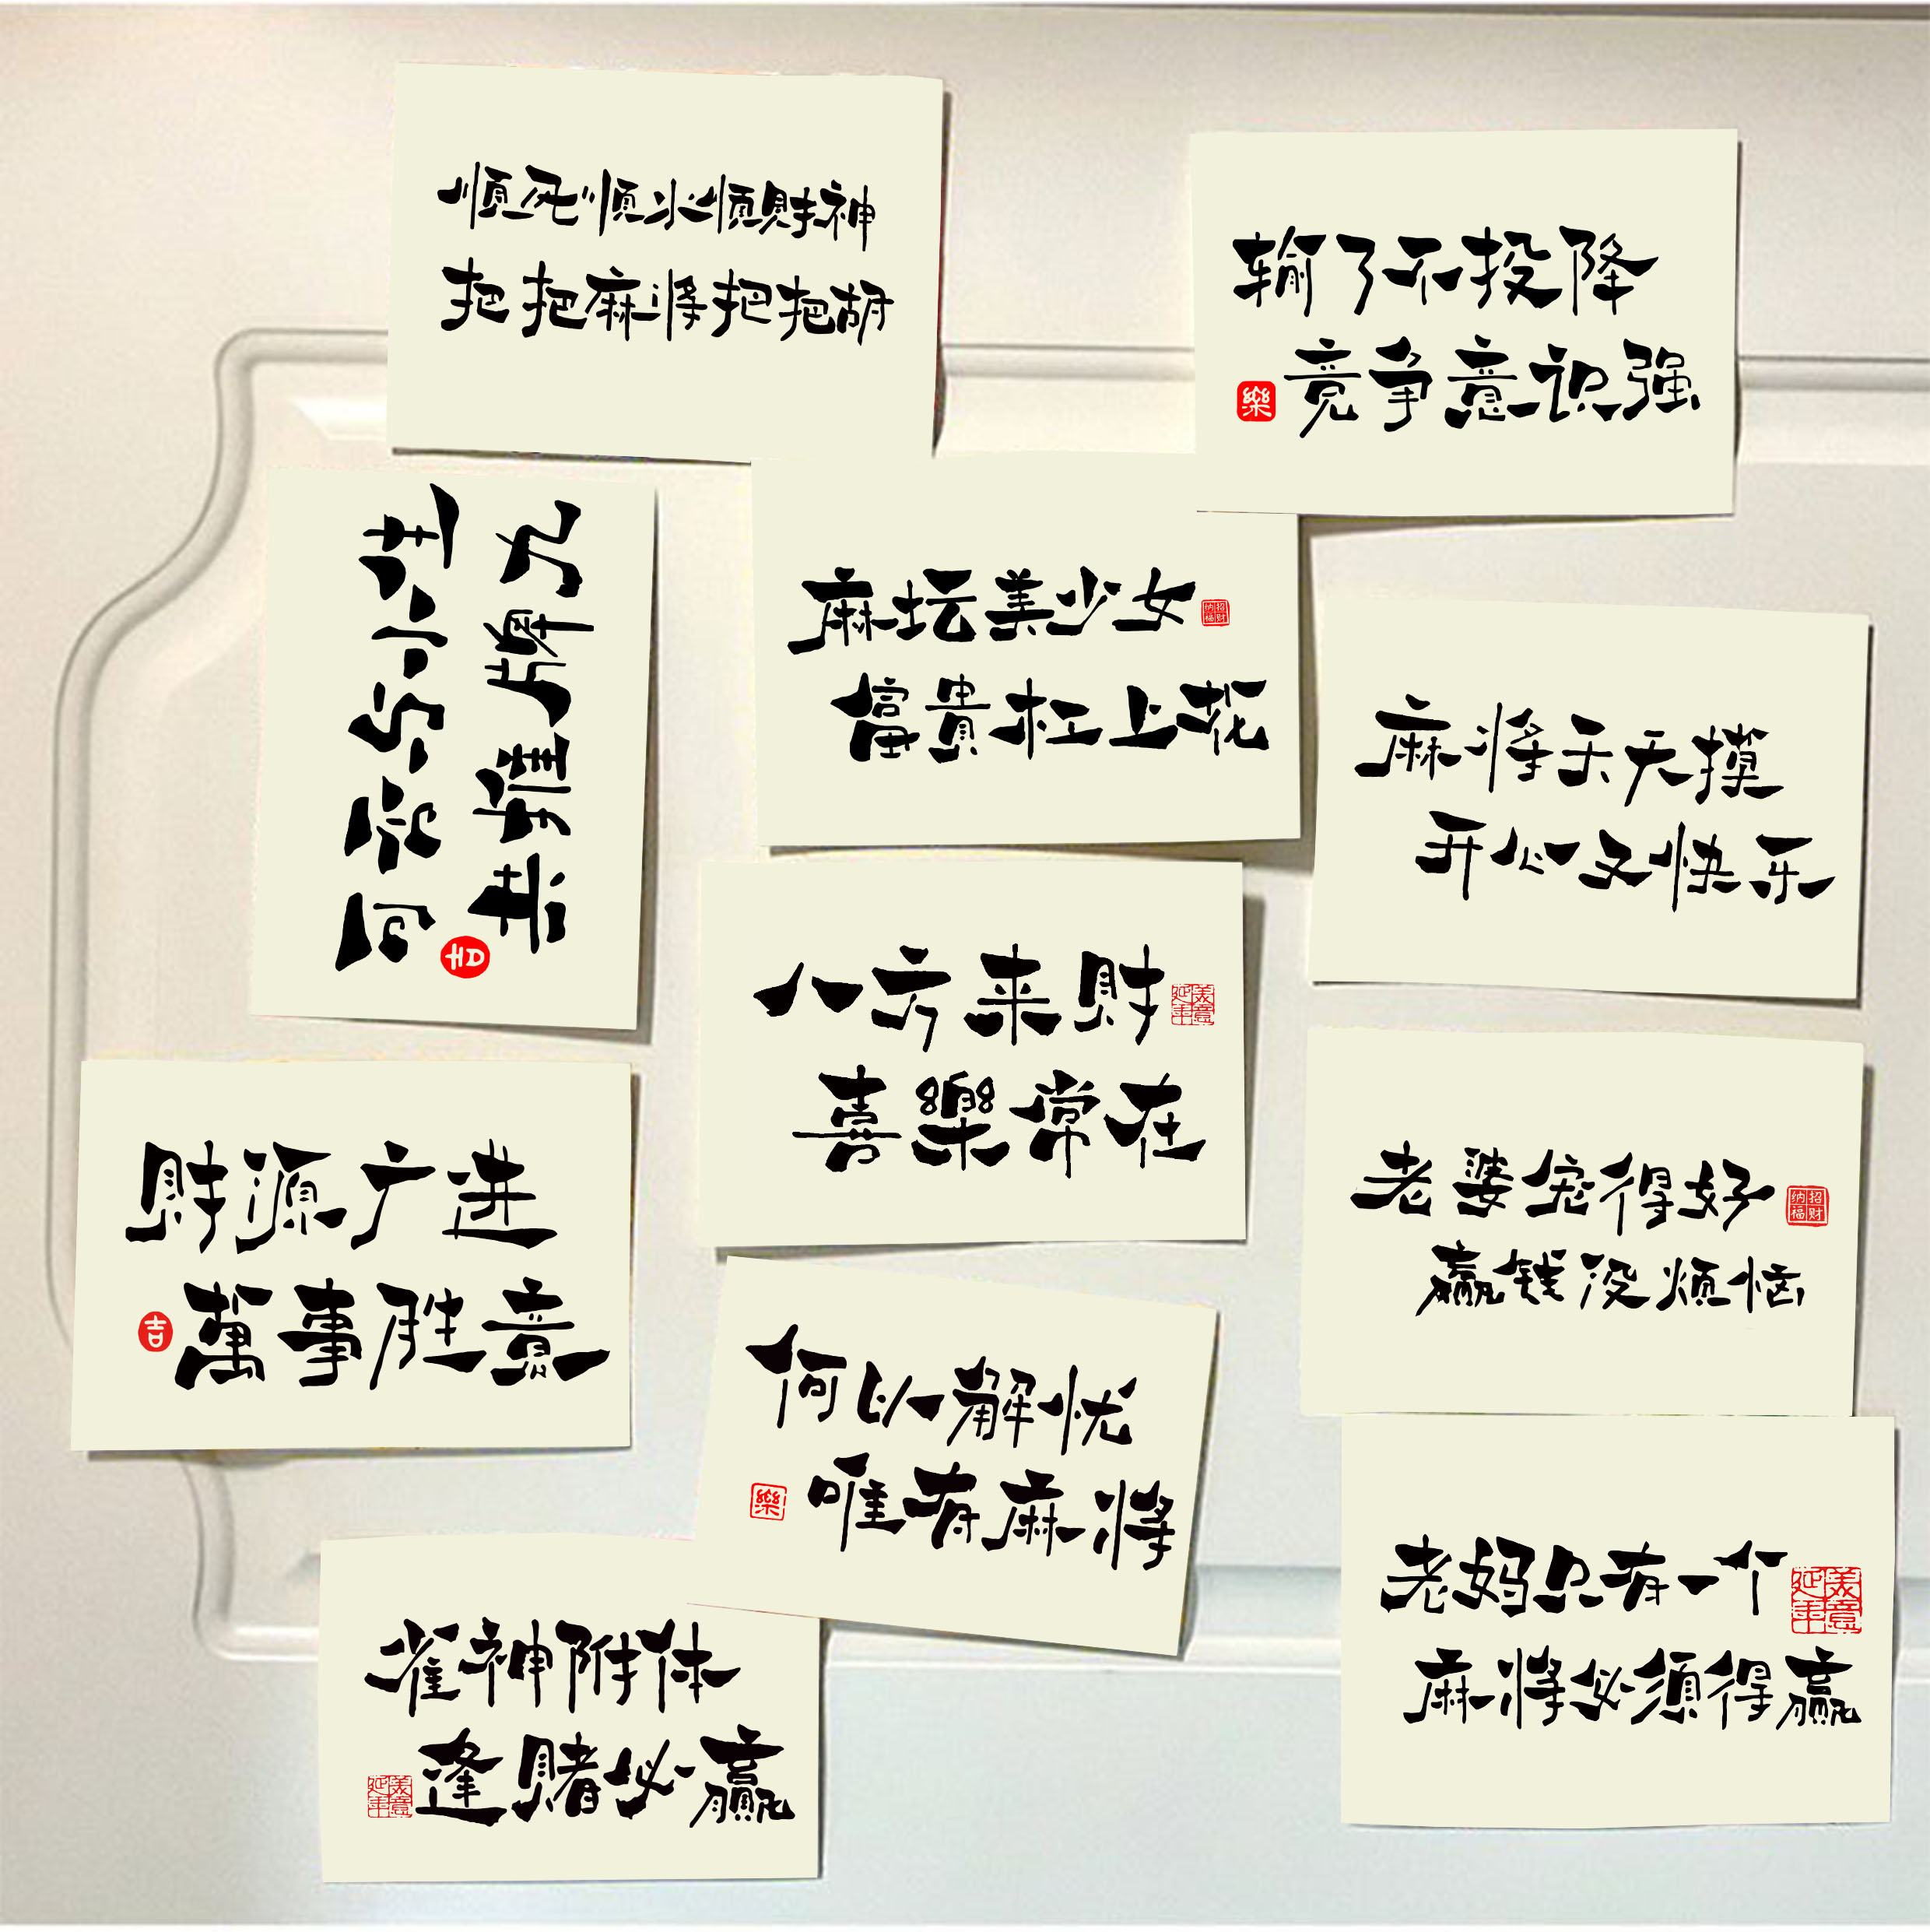 顺风顺水顺财神
把把麻将把把胡
输了不投降
竞争意识强
樂
推牌九
麻坛美少女
招财纳福
富貴杠上花
麻将天天摸
开心又快乐
八方来财
美意延年
喜樂常在
财源广进
萬事胜意
吉
老婆宠得好
招财纳福
赢钱没烦恼
何以解忧
唯有麻将
樂
雀神附体
逢赌必赢
美意延年
老妈只有一个
美意延年
麻将必须得赢